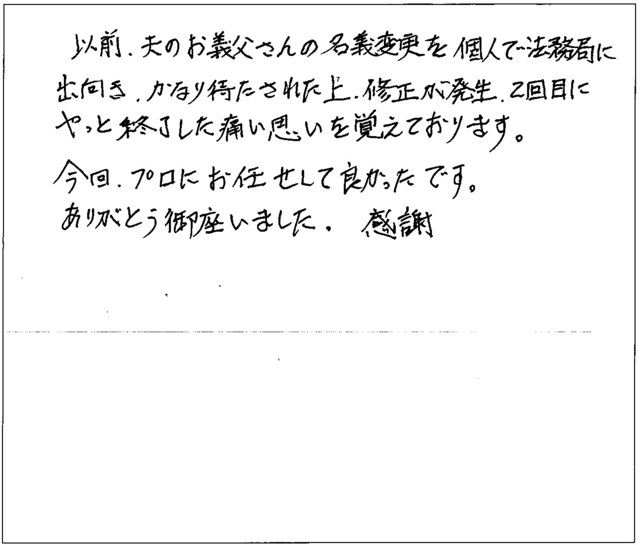 以前、夫のお義父さんの名義変更を個人で法務局に
出向き、かなり待たされた上、修正が発生、2回目に
やっと終了した痛い思いを覚えております。
今回、プロにお任せして良かったです。
ありがとう御座いました。 感謝